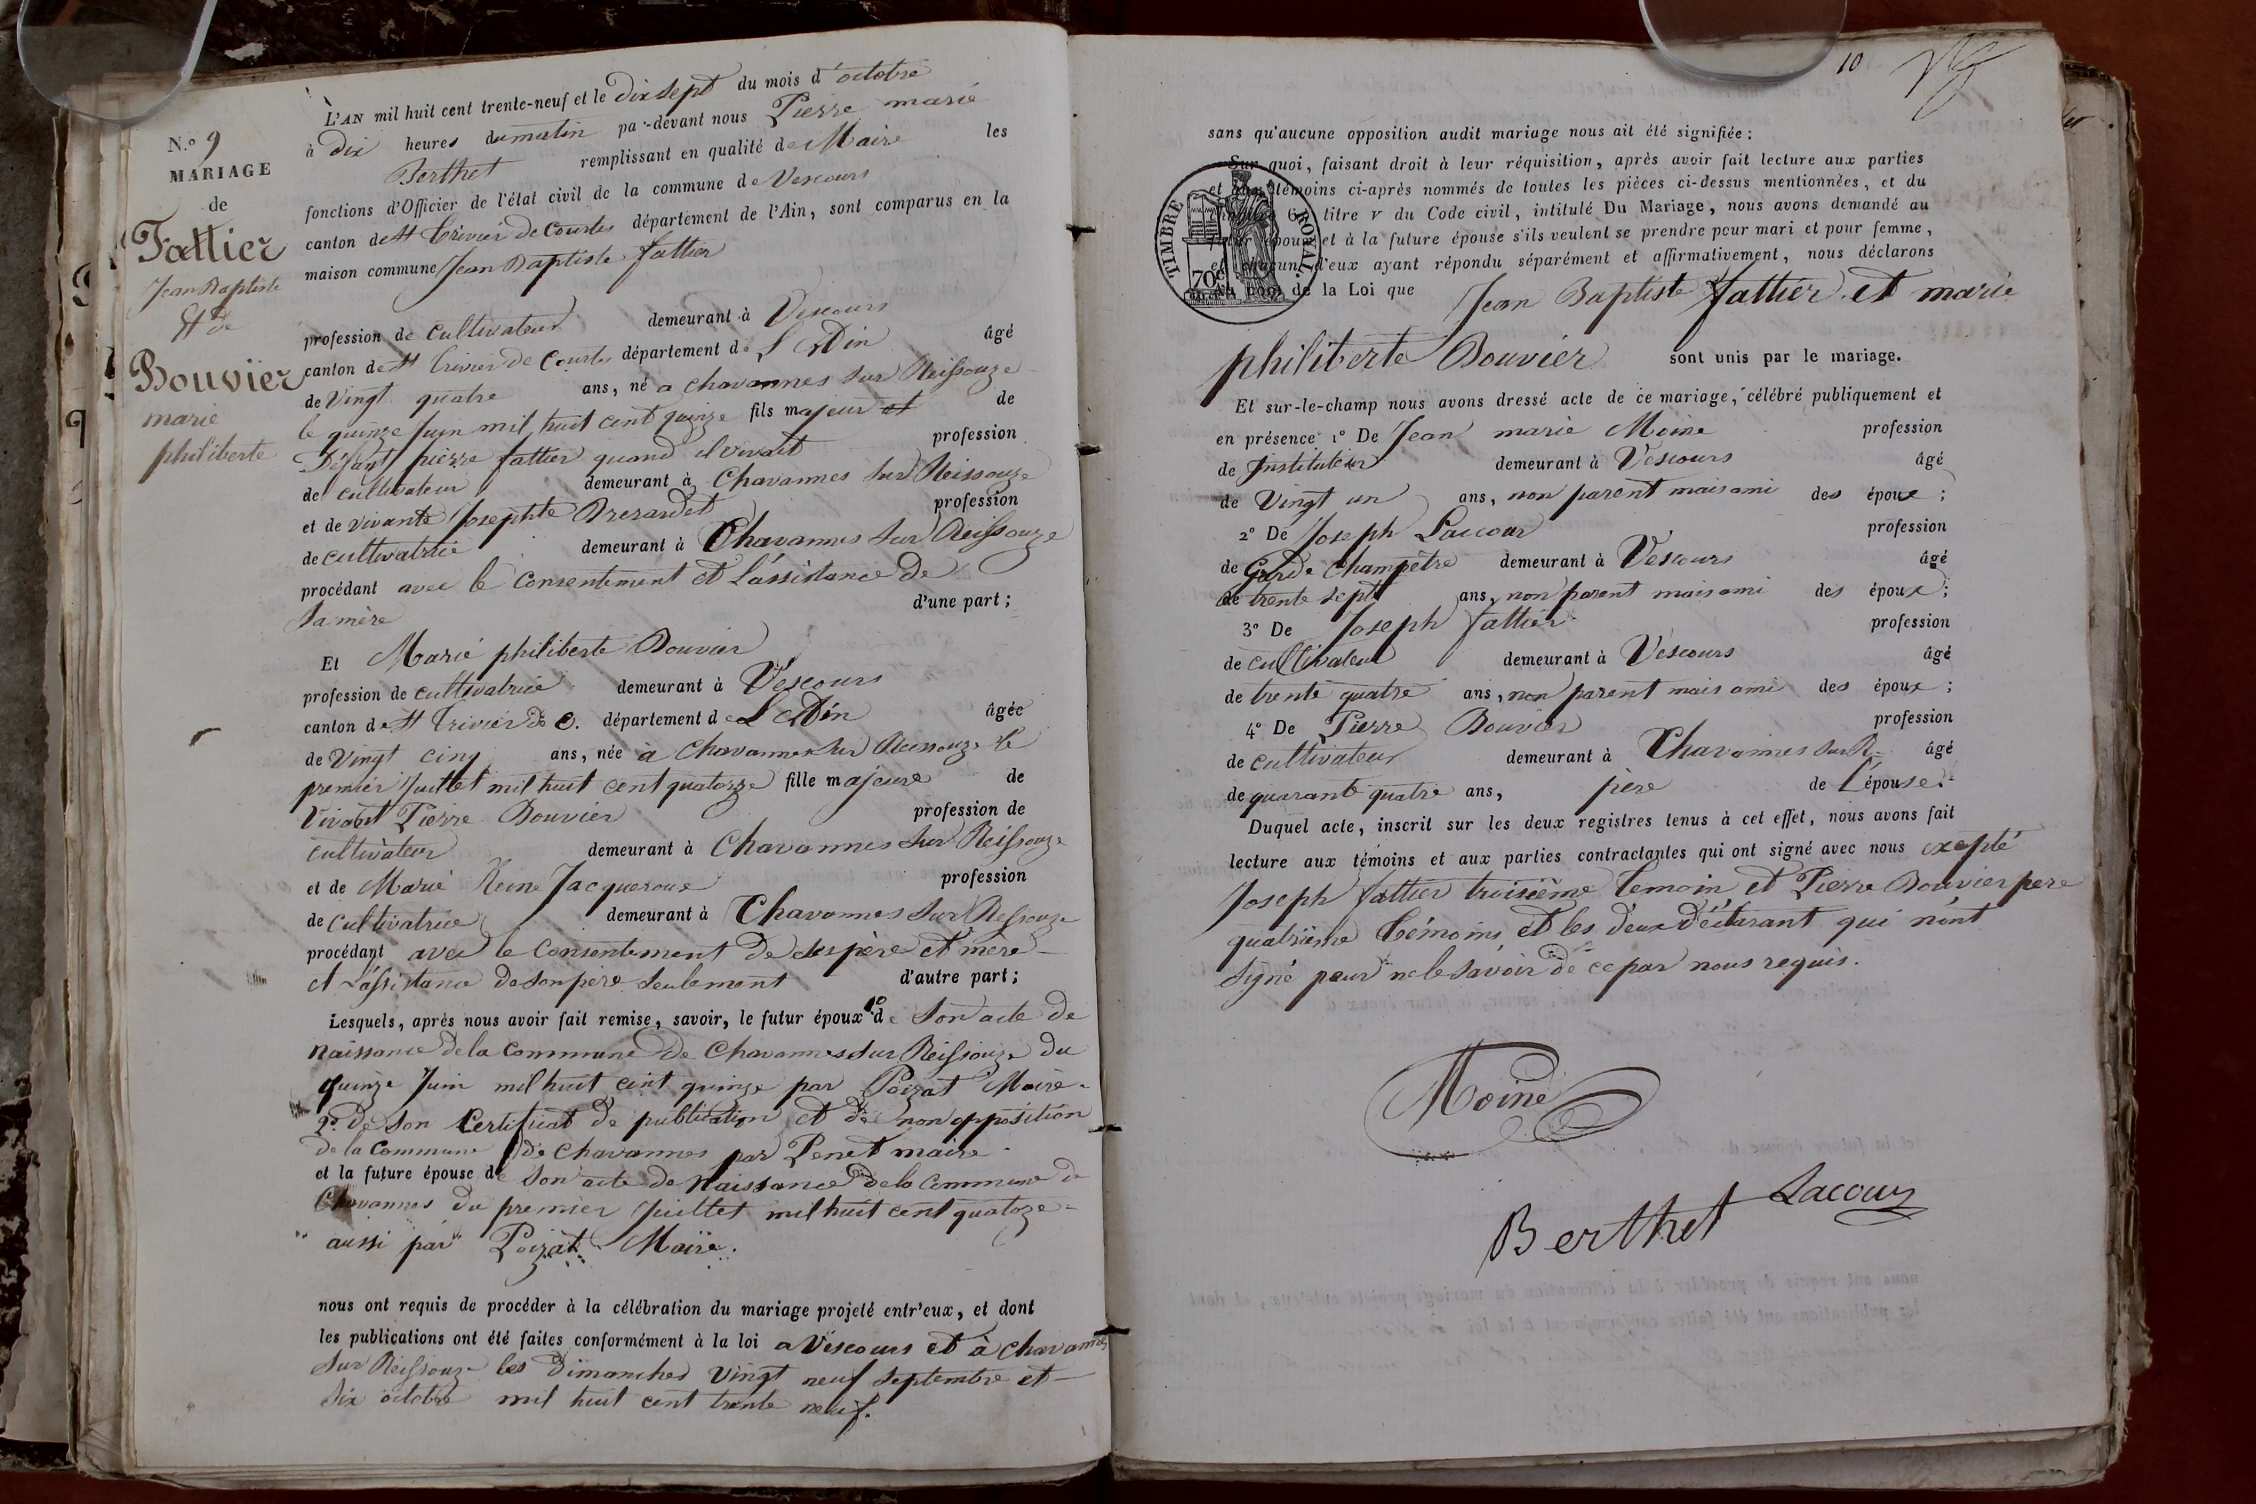 N.o 9
MARIAGE
de
Fattier
Jean Baptiste
Et de
Bouvier
marie
philiberte
L'AN mil huit cent trente-neuf et le Dix Sept du mois d'octobre
à Dix heures du matin par-devant nous Pierre marie
Berthet remplissant en qualité de Maire les
fonctions d'Officier de l'état civil de la commune de Vescours
canton de St Trivier de Courtes département de l'Ain, sont comparus en la
maison commune Jean Baptiste fattier
profession de cultivateur demeurant à Vescours
canton de St Trivier de Courtes département de L'Ain âgé
de Vingt quatre ans, né a chavannes sur Reissouze
le quinze Juin mil huit cent quinze fils majeur et de
Défunt pierre fattier quand il vivait profession
de cultivateur demeurant à Chavannes sur Reissouze
et de vivante Josephte profession
de cultivatrice demeurant à Chavannes sur Reissouze
procédant avec le Consentement et L'assistance de
Sa mère d'une part;
Et Marie philiberte Bouvier
profession de cultivatrice demeurant à Vescours
canton de St Trivier de C. département de L'Ain âgée
de Vingt cinq ans, née à Chavannes sur Reissouze le
premier Juillet mil huit cent quatorze fille majeure de
Vivant Pierre Bouvier profession de
cultivateur demeurant à Chavannes sur Reissouze
et de Marie Reine Jacqueroux profession
de cultivatrice demeurant à Chavannes sur Reissouze
procédant avec le Consentement de ses père et mère
et L'assistance de son père seulement d'autre part;
Lesquels, après nous avoir fait remise, savoir, le futur époux 1o de Son acte de
Naissance de la Commune de Chavannes sur Reissouze du
quinze Juin mil huit cent quinze par Poizat Maire.
2o De Son Certificat de publication et de non opposition
de la Commune de Chavannes par Penet maire.
et la future épouse de Son acte de Naissance de la Commune de
Chavannes du premier Juillet mil huit cent quatoze
aussi par Poizat Maire.
nous ont requis de procéder à la célébration du mariage projeté entr'eux, et dont
les publications ont été faites conformément à la loi a Vescours et à chavannes
sur Reissouze les Dimanches Vingt neuf Septembre et
Six octobre mil huit cent trente neuf.
10
sans qu'aucune opposition audit mariage nous ait été signifiée:
Sur quoi, faisant droit à leur réquisition, après avoir fait lecture aux parties
et aux témoins ci-après nommés de toutes les pièces ci-dessus mentionnées, et du
chapitre 6, titre V du Code civil, intitulé Du Mariage, nous avons demandé au
futur époux et à la future épouse s'ils veulent se prendre pour mari et pour femme,
et chacun d'eux ayant répondu séparément et affirmativement, nous déclarons
au nom de la Loi que Jean Baptiste fattier et marie
TIMBRE ROYAL
70c
philiberte Bouvier sont unis par le mariage.
Et sur-le-champ nous avons dressé acte de ce mariage, célébré publiquement et
en présence 1o De Jean marie Moine profession
de Instituteur demeurant à Vescours âgé
de Vingt un ans, non parent mais ami des époux;
2o De Joseph Lacour profession
de Garde Champêtre demeurant à Vescours âgé
de trente sept ans, non parent mais ami des époux;
3o De Joseph fattier profession
de cultivateur demeurant à Vescours âgé
de trente quatre ans, non parent mais ami des époux;
4o De Pierre Bouvier profession
de cultivateur demeurant à Chavannes sur R. âgé
de quarante quatre ans, père de L'épouse.
Duquel acte, inscrit sur les deux registres tenus à cet effet, nous avons fait
lecture aux témoins et aux parties contractantes qui ont signé avec nous excepté
Joseph fattier troisième temoin et Pierre Bouvier pere
quatrième témoins et les deux déclarant qui n'ont
signé pour ne le savoir de ce par nous requis.
Moine
Lacour
Berthet